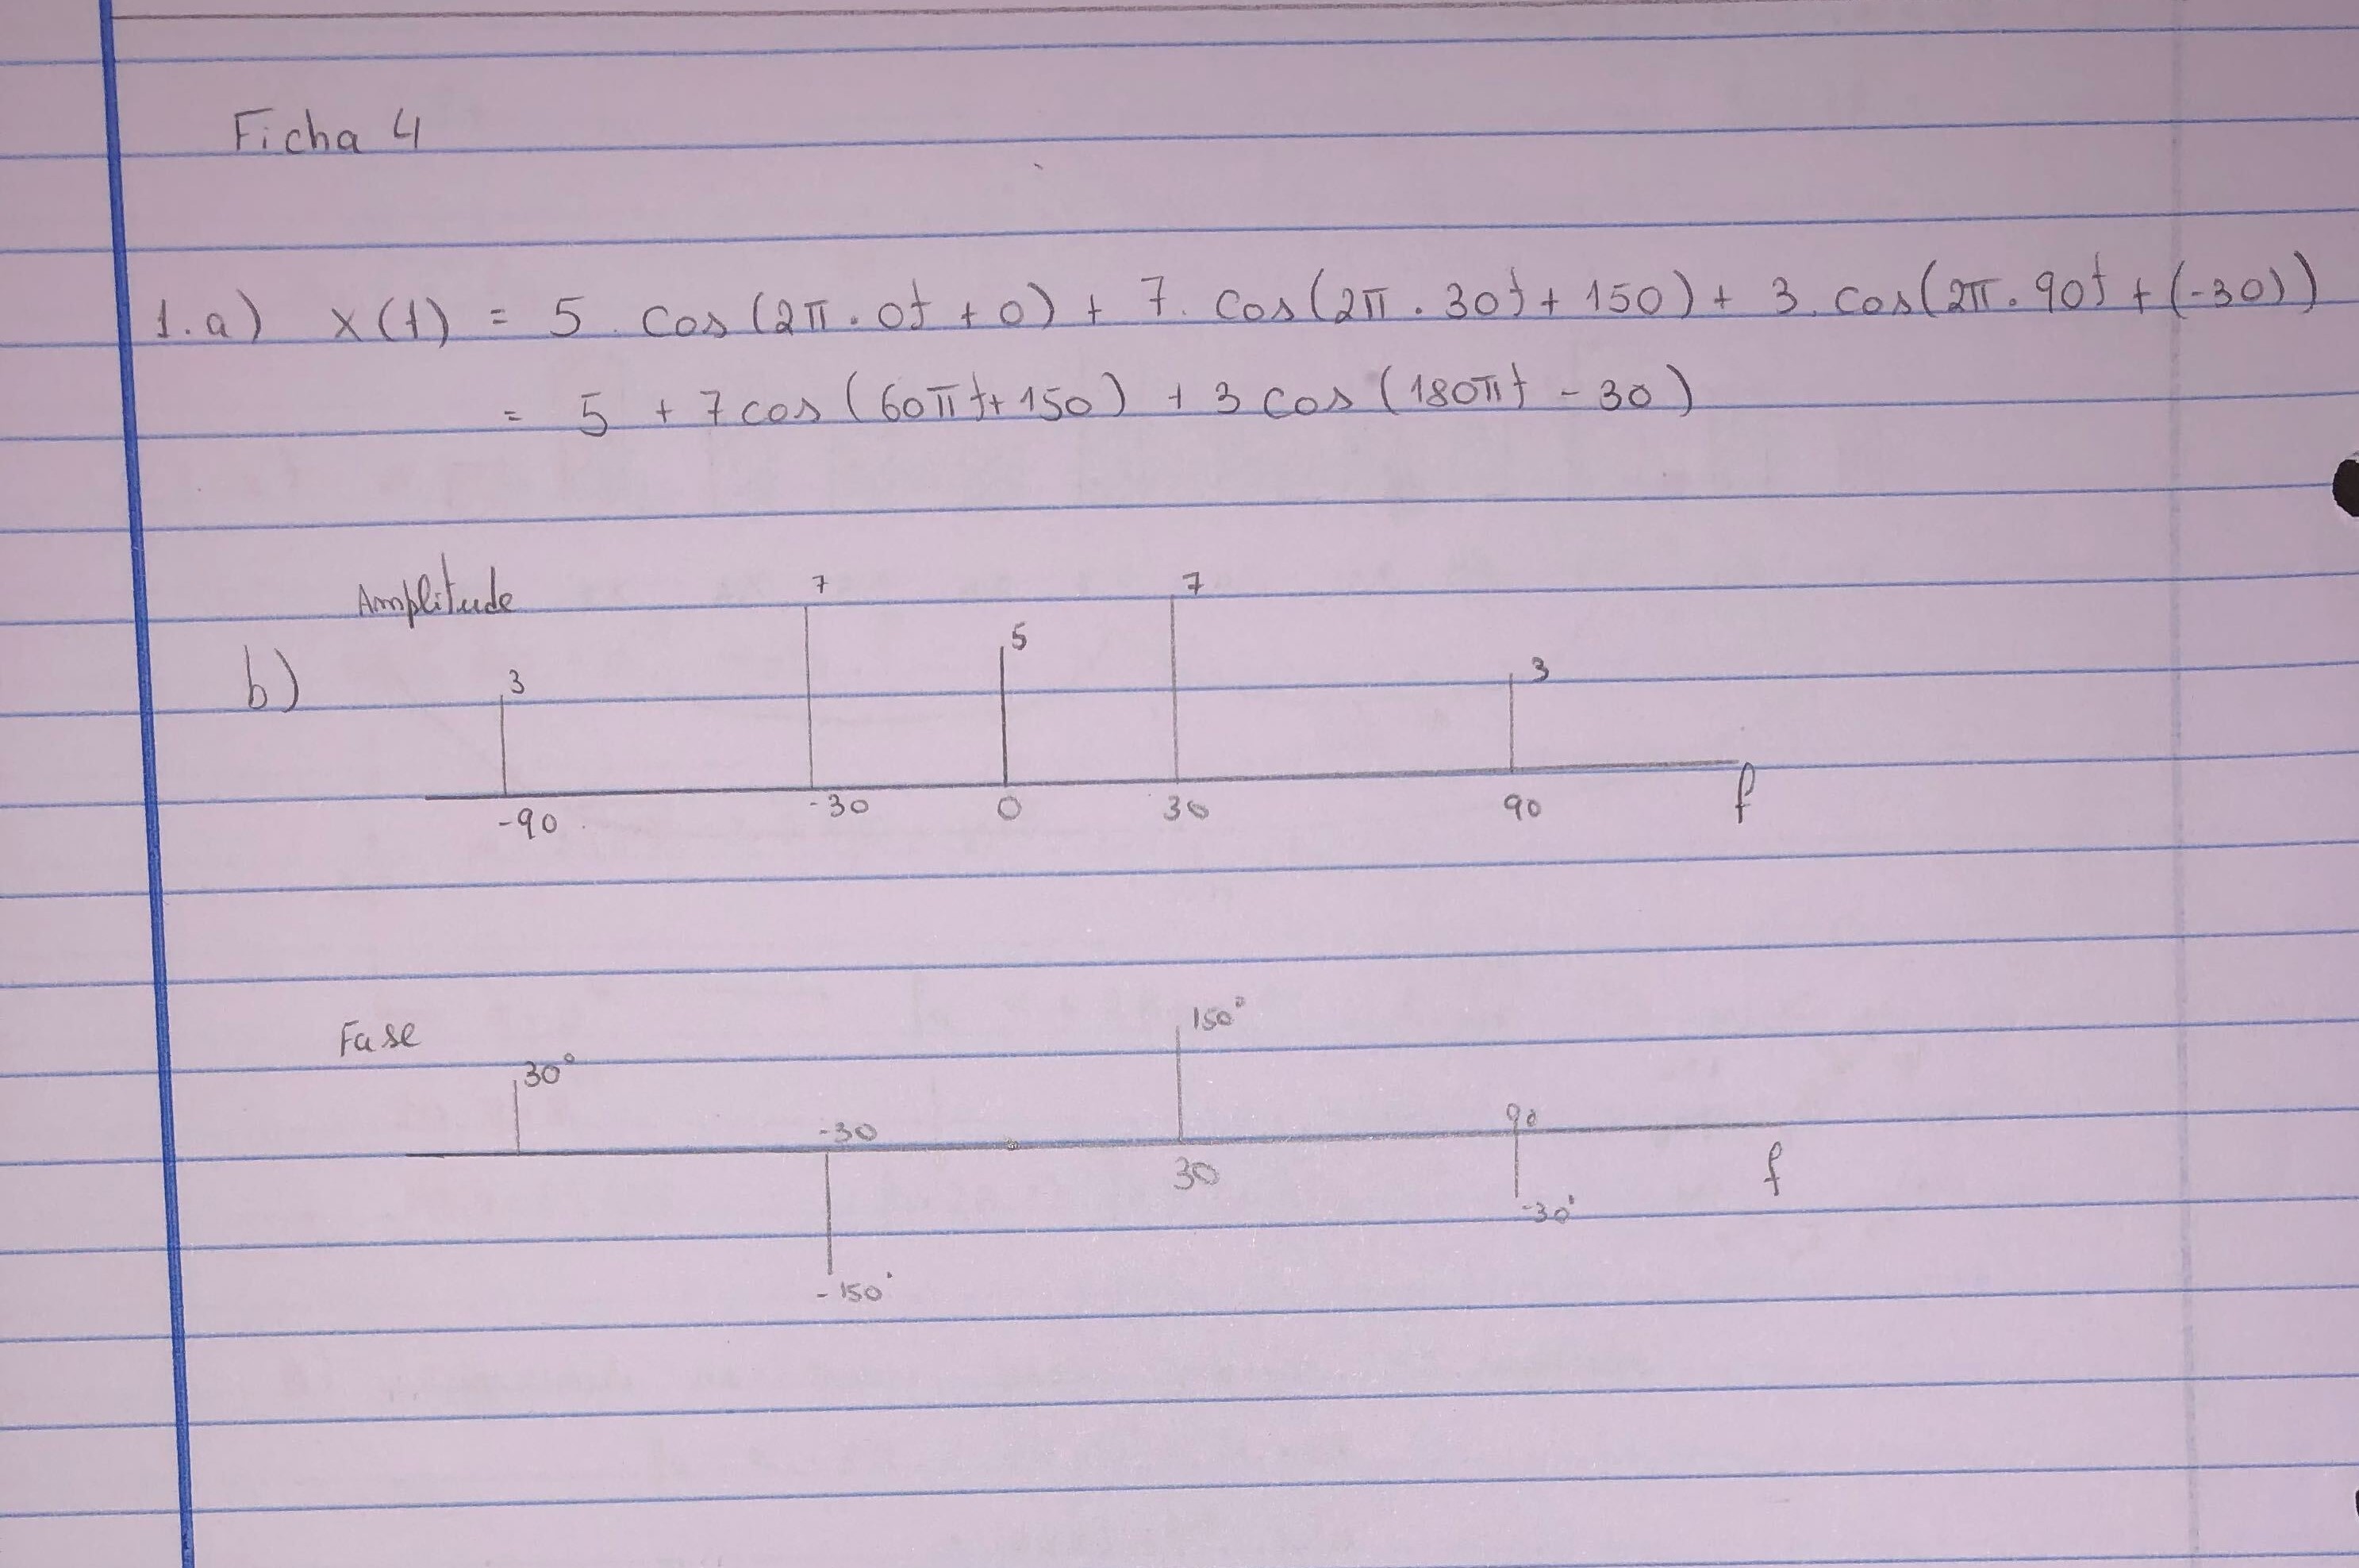 Ficha 4
1.a) x(t) = 5 . cos (2π . 0t + 0) + 7 . cos (2π . 30t + 150) + 3 . cos (2π . 90t + (-30))
= 5 + 7 cos (60πt + 150) + 3 cos (180πt - 30)
Amplitude
b)
3 7 5 7 3
-90 -30 0 30 90 f
Fase
30° 150°
-30 90
30 f
-150° -30°